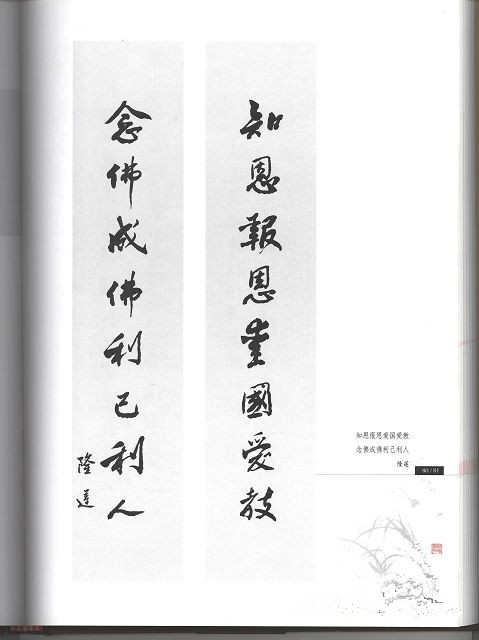 知恩報恩愛國愛教
念佛成佛利己利人
隆蓮
知恩报恩爱国爱教
念佛成佛利己利人
隆莲
80/81